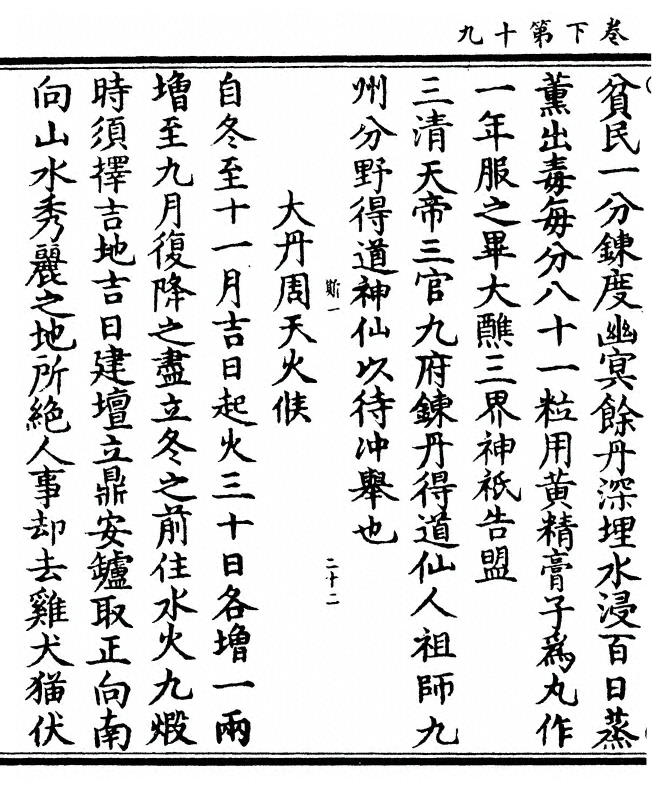 卷下第十九
貧民一分鍊度幽冥餘丹深埋水浸百日蒸
薰出毒每分八十一粒用黄精膏子爲丸作
一年服之畢大醮三界神祇告盟
三清天帝三官九府鍊丹得道仙人祖師九
州分野得道神仙以待冲舉也
斯一
二十二
大丹周天火候
自冬至十一月吉日起火三十日各增一兩
增至九月復降之盡立冬之前住水火九煅
時須擇吉地吉日建壇立鼎安鑪取正向南
向山水秀麗之地所絶人事却去雞犬猫伏